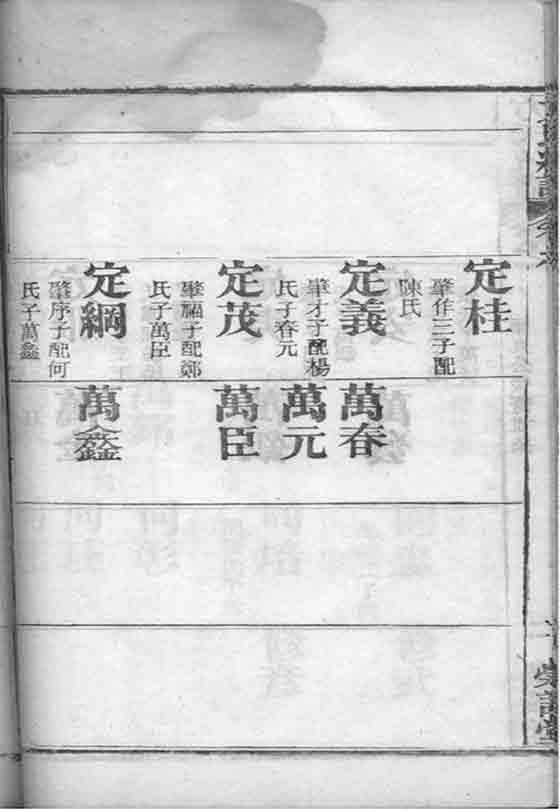 定桂
肇作三子配
陳氏
定義
肇才子配楊
氏子春元
定茂
肇福子配鄭
氏子萬臣
定綱
肇序子配何
氏子萬鑫
萬春
萬元
萬臣
萬鑫